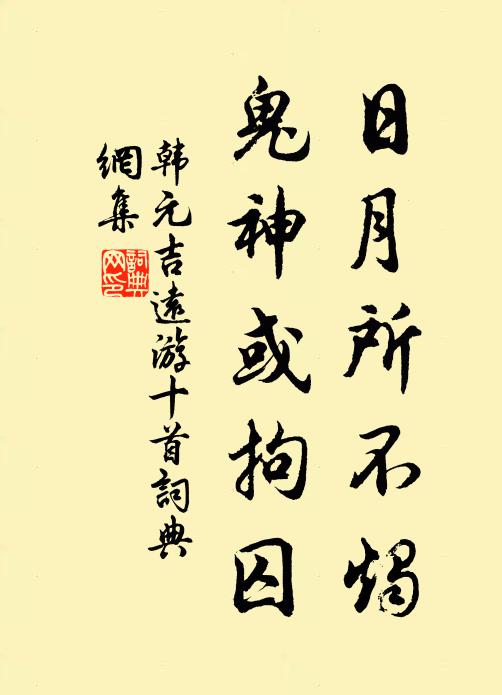 日月所不烛
鬼神或拘囚
韩元吉遠游十首詞典
網集
詞典
网印